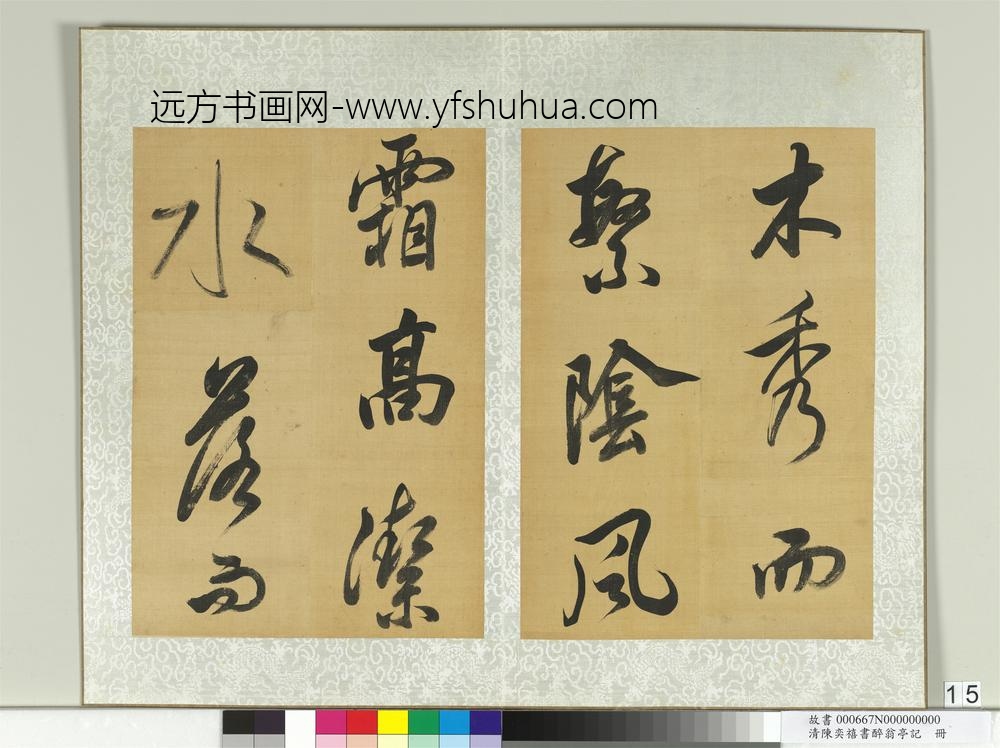 远方书画网-www.yfshuhua.com
木秀而
繁陰風
霜高潔
水落而
15
故書 000667N000000000
清陳奕禧書醉翁亭記 冊